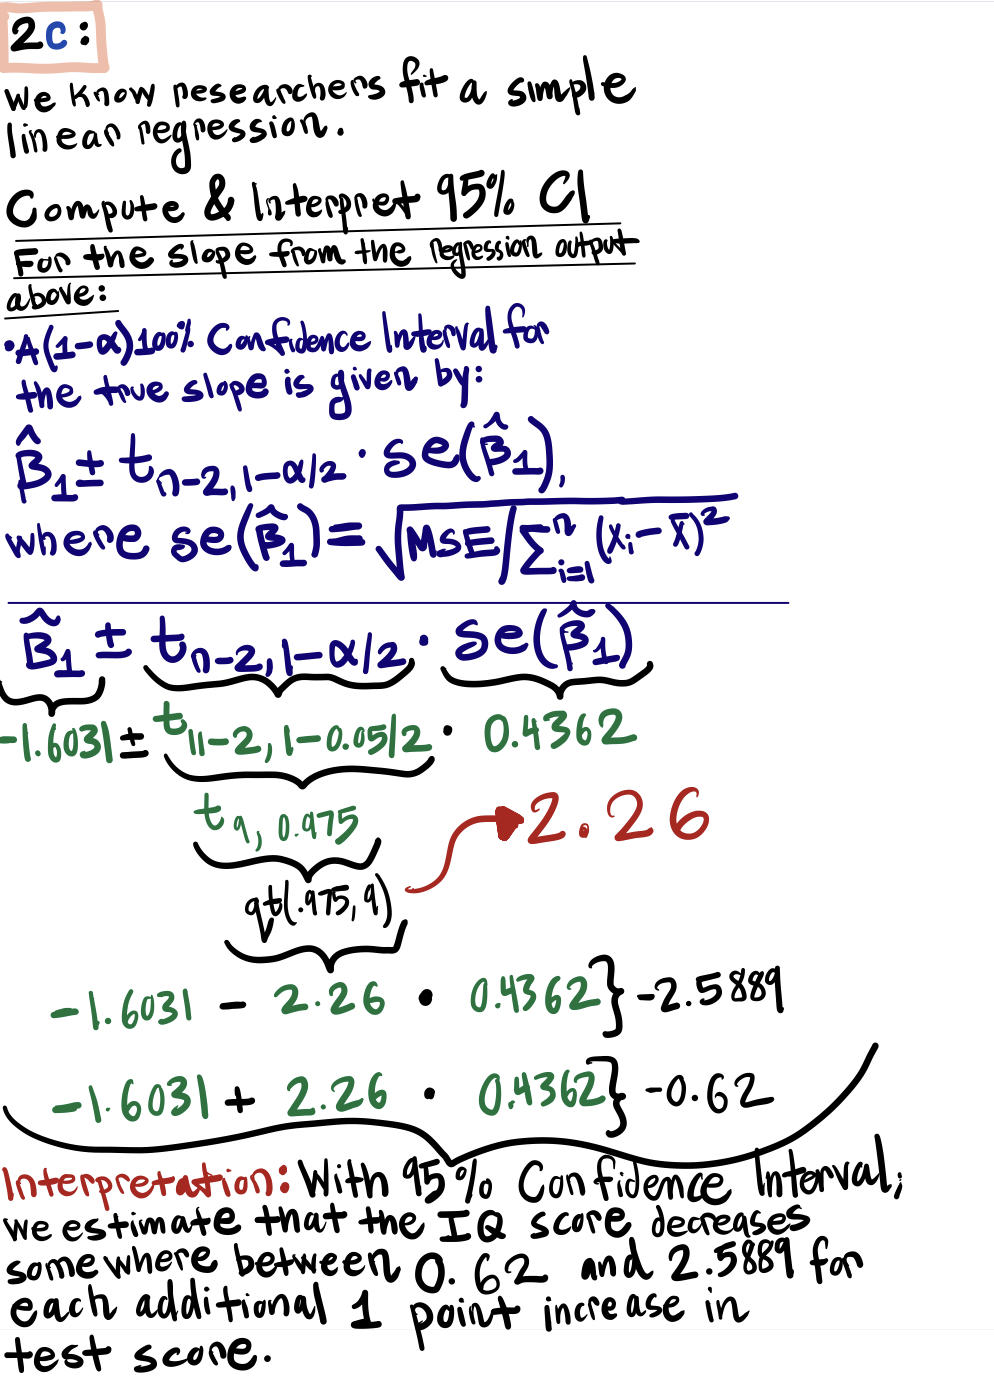 2c:
We know researchers fit a simple
linear regression.
Compute & Interpret 95% CI
For the slope from the regression output
above:
• A (1-α)100% Confidence Interval for
the true slope is given by:
β̂₁ ± t_{n-2, 1-α/2} · se(β̂₁),
where se(β̂₁) = √(MSE / ∑ᵢ₌₁ⁿ (xᵢ - x̄)²)
β̂₁ ± t_{n-2, 1-α/2} · se(β̂₁)
-1.6031 ± t_{11-2, 1-0.05/2} · 0.4362
t_{9, 0.975}
2.26
qt(.975, 9)
-1.6031 - 2.26 · 0.4362} -2.5889
-1.6031 + 2.26 · 0.4362} -0.62
Interpretation: With 95% Confidence Interval,
we estimate that the IQ score decreases
somewhere between 0.62 and 2.5889 for
each additional 1 point increase in
test score.